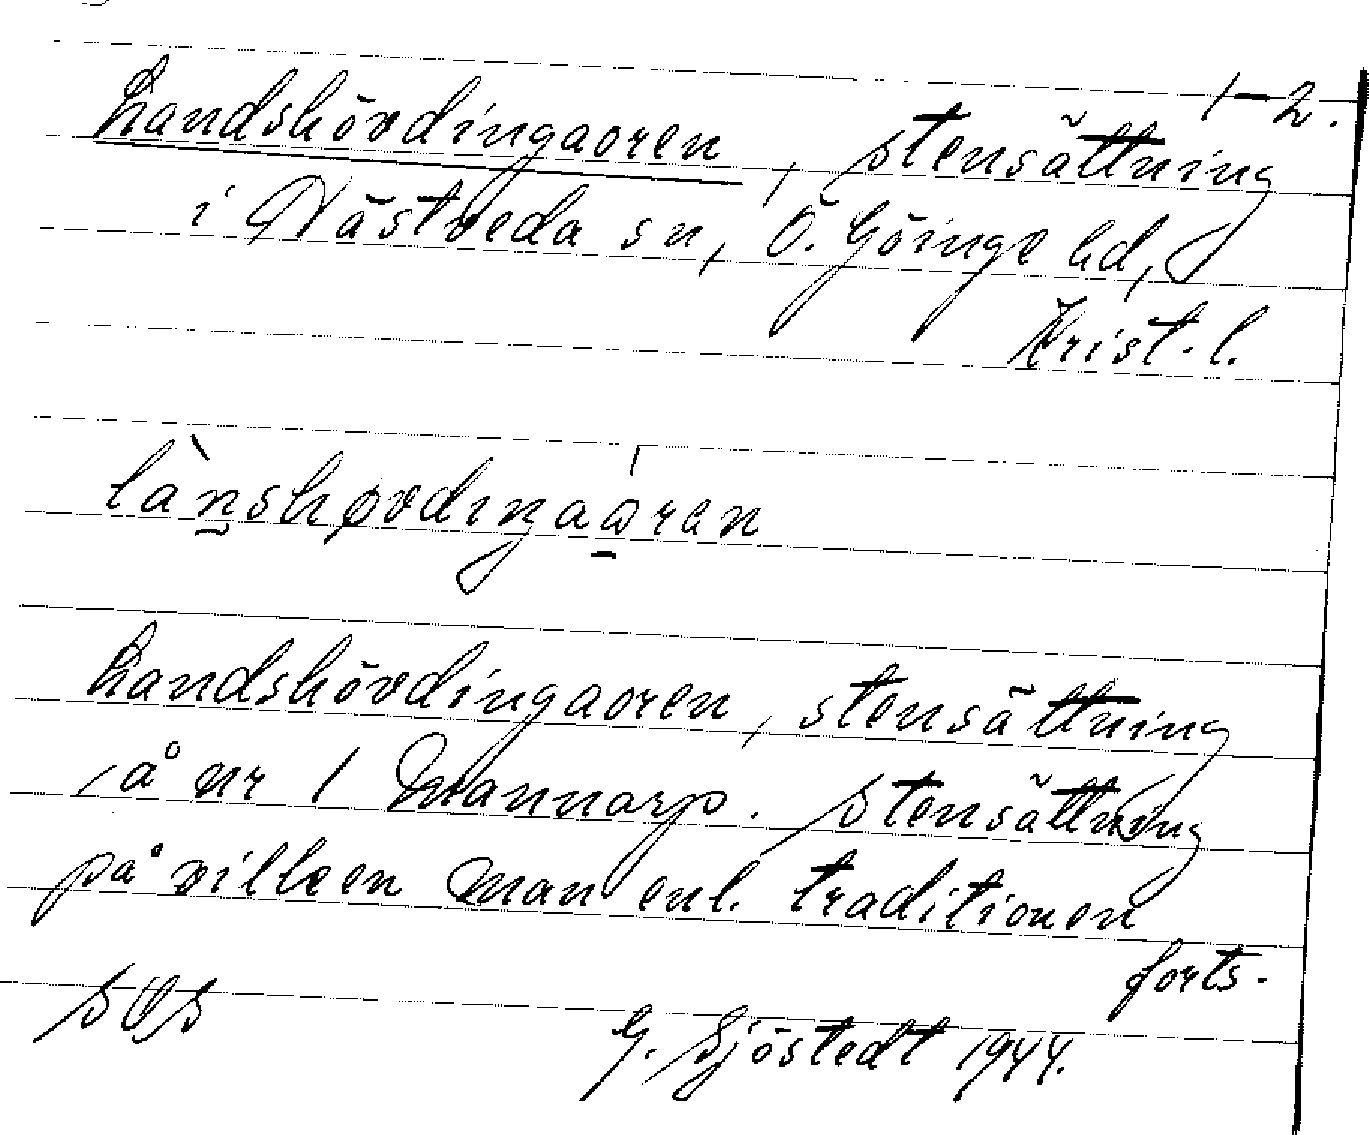 1-2.
Landshövdingaoren, stensättning
i Västveda sn, Ö. Göinge hd,
Krist. l.
lànshøvdiŋaωren
Landshövdingaoren, stensättning
å nr 1 Mannarp. Stensättning
på vilken man enl. traditionen
forts.
SOS
G. Sjöstedt 1944.